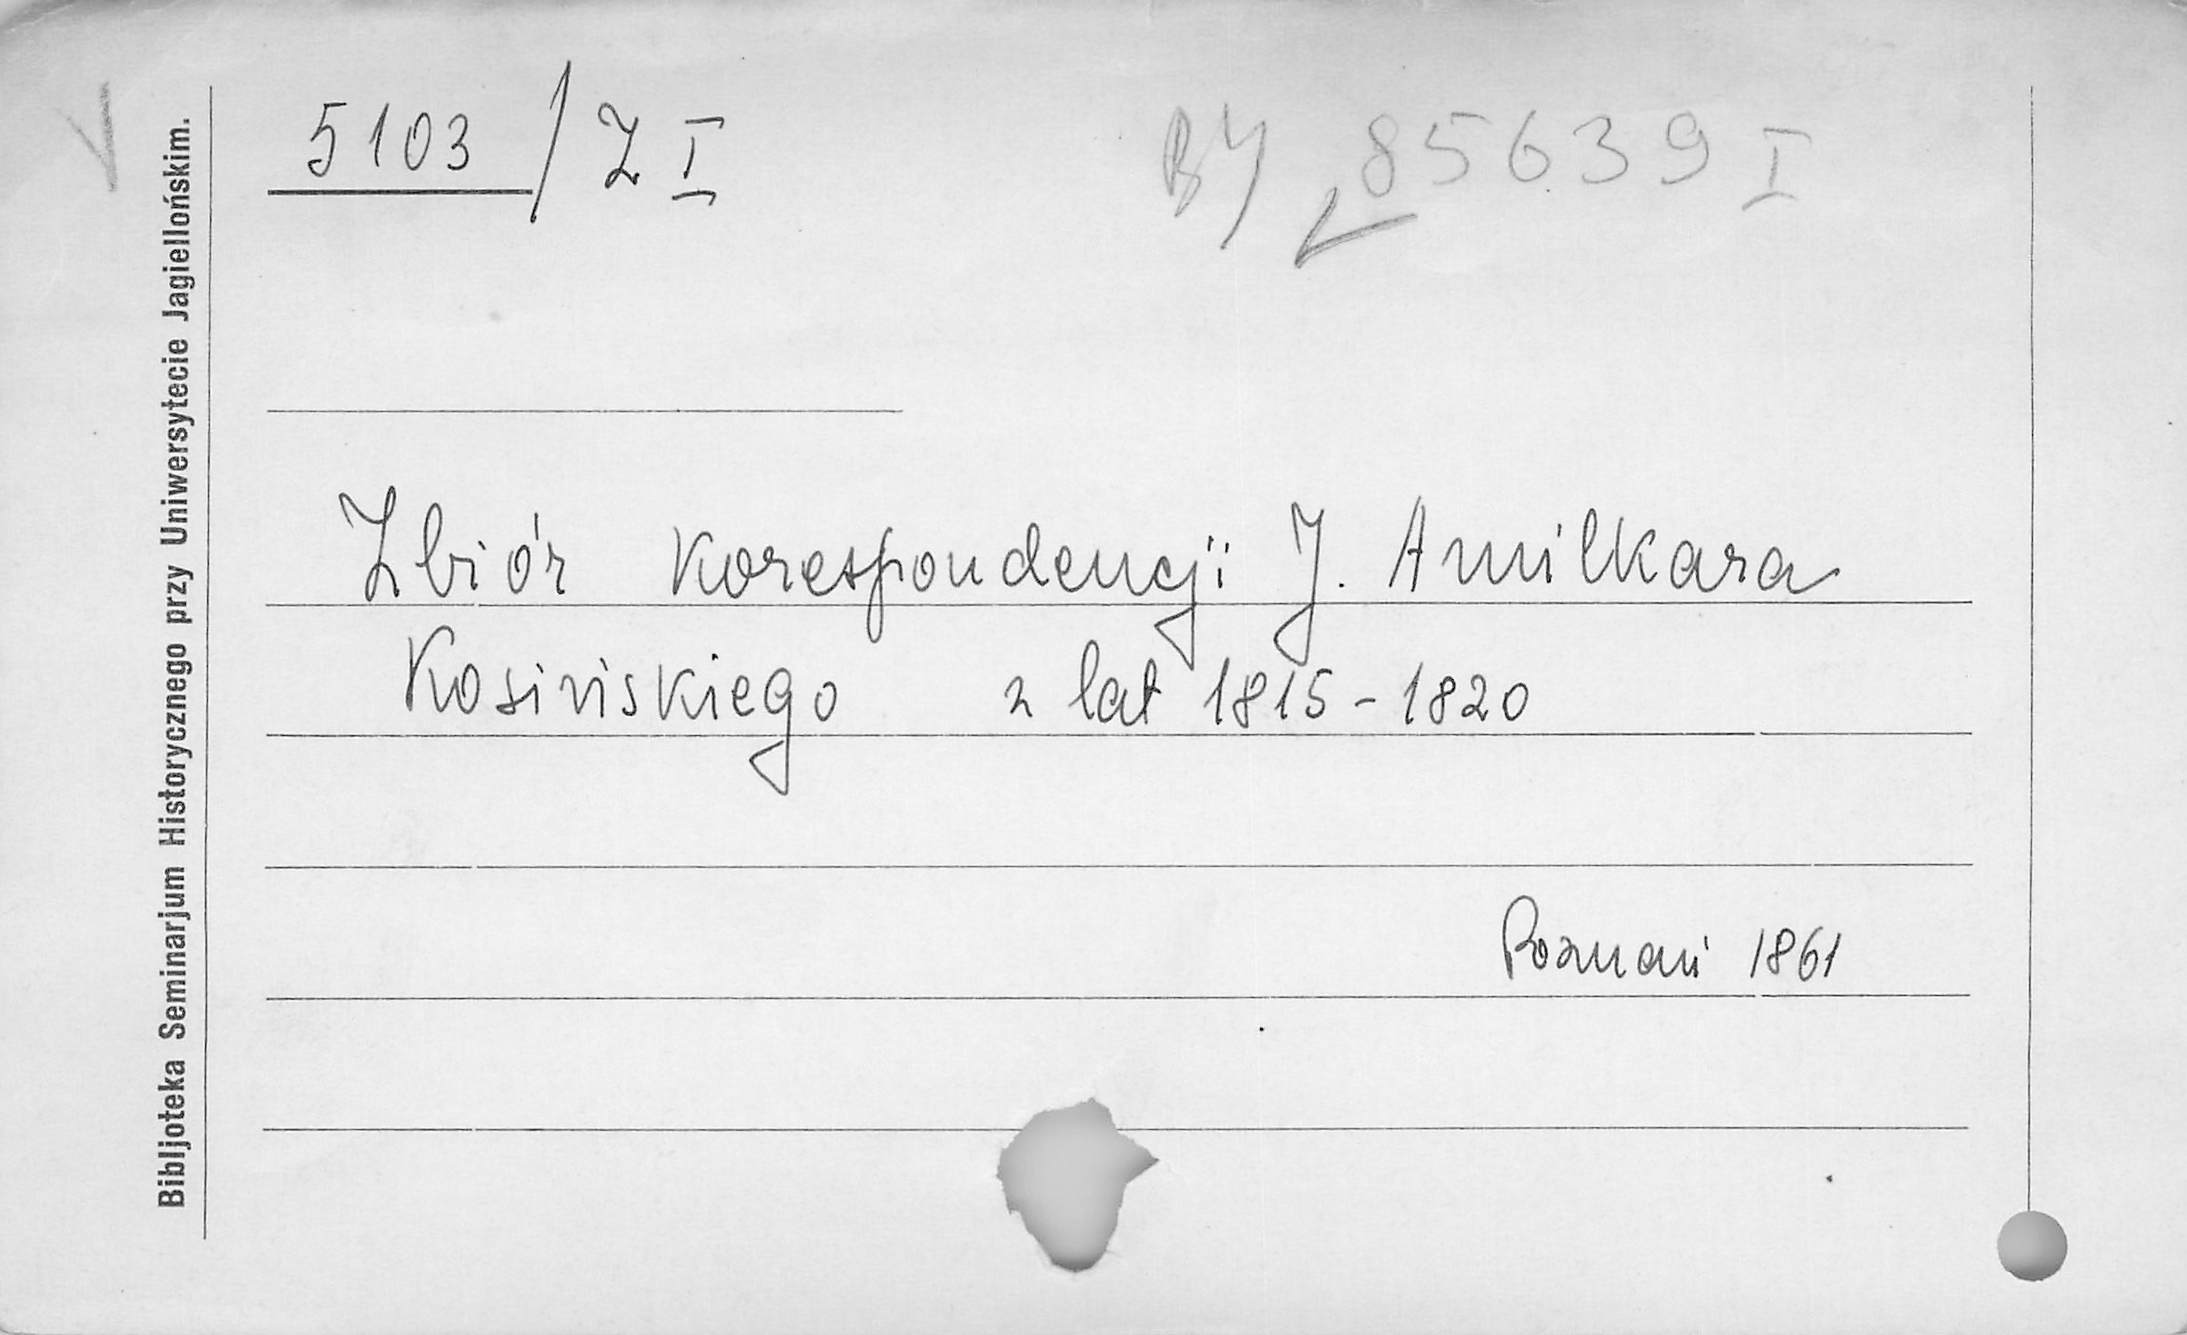 5103/Z I
BJ 85639 I
Zbiór korespondencji J. Amilkara
Kosińskiego z lat 1815-1820
Poznań 1861
Bibljoteka Seminarjum Historycznego przy Uniwersytecie Jagiellońskim.